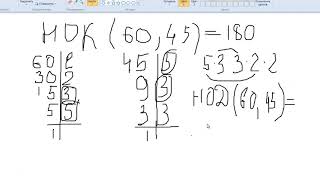 НОК (60,45)=180
60 2
30 2
15 3
5 5
1
45 5
9 3
3 3
1
5·3·3·2·2
НОД(60,45)=